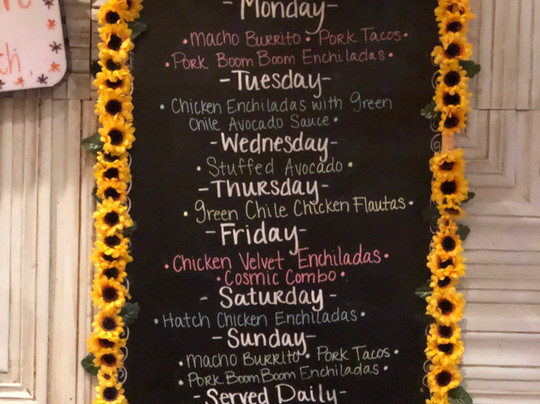 - Monday -
• macho Burrito • Pork Tacos •
• Pork Boom Boom Enchiladas •
- Tuesday -
• Chicken Enchiladas with green
Chile Avocado Sauce •
- Wednesday -
• Stuffed Avocado •
- Thursday -
• green Chile Chicken Flautas •
- Friday -
• Chicken Velvet Enchiladas •
• Cosmic Combo •
- Saturday -
• Hatch Chicken Enchiladas •
- Sunday -
• macho Burrito • Pork Tacos •
• Pork Boom Boom Enchiladas •
- Served Daily -